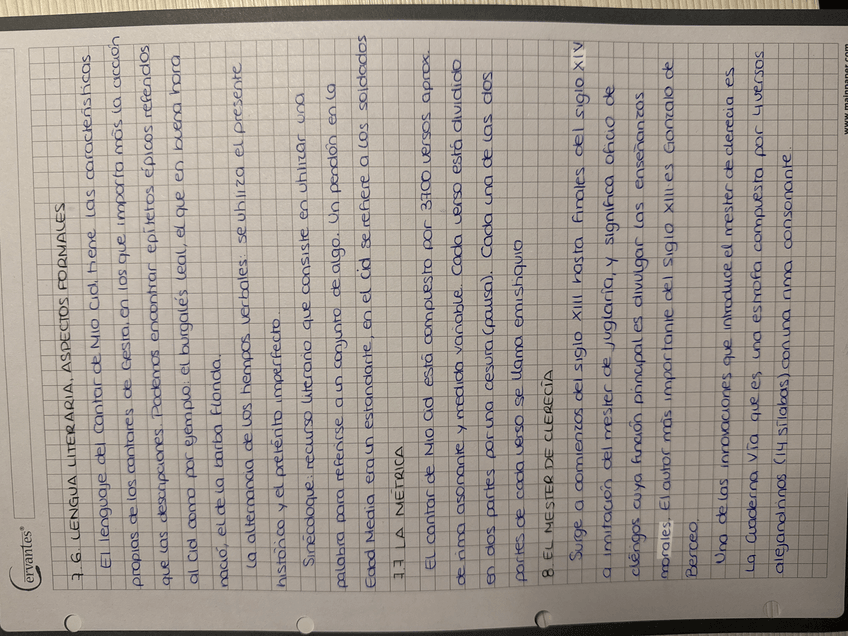 Cervantes®
7.6. LENGUA LITERARIA. ASPECTOS FORMALES
El lenguaje del Cantar de Mio Cid, tiene las características
propias de los cantares de Gesta, en los que importa más la acción
que las descripciones. Podemos encontrar epítetos épicos referidos
al Cid como por ejemplo: el burgalés leal, el que en buena hora
nació, el de la barba florida.
La alternancia de los tiempos verbales: se utiliza el presente
histórico y el pretérito imperfecto.
Sinécdoque: recurso literario que consiste en utilizar una
palabra para referirse a un conjunto de algo. Un pendón en la
Edad Media era un estandarte, en el Cid se refiere a los soldados
7.7 LA MÉTRICA
El cantar de Mio Cid está compuesto por 3700 versos aprox.
de rima asonante y medida variable. Cada verso está dividido
en dos partes por una cesura (pausa). Cada una de las dos
partes de cada verso se llama emistiquio
8. EL MESTER DE CLERECÍA
Surge a comienzos del siglo XIII hasta finales del siglo XIV
a imitación del mester de juglaría, y significa oficio de
clérigos cuya función principal es divulgar las enseñanzas
morales. El autor más importante del siglo XIII es Gonzalo de
Berceo.
Una de las innovaciones que introduce el mester de clerecía es
la Cuaderna Vía que es, una estrofa compuesta por 4 versos
alejandrinos (14 sílabas) con una rima consonante.